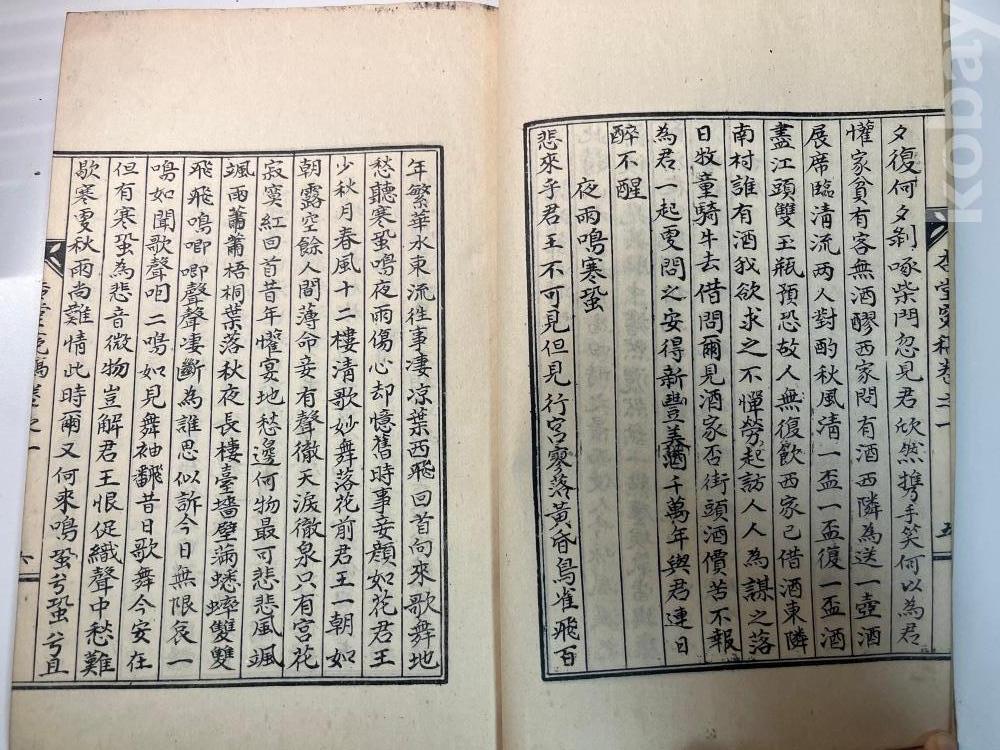 夕復何夕剝啄柴門忽見君欣然携手笑何以為君
懽家貧有客無酒醪西家問有酒西隣為送一壺酒
展席臨清流两人對酌秋風清一盃一盃復一盃酒
盡江頭雙玉瓶預恐故人無復飲西家已借酒東隣
南村誰有酒我欲求之不憚勞起訪人人為謀之落
日牧童騎牛去借問爾見酒家否街頭酒價苦不報
為君一起更問之安得新豐美酒千萬年與君連日
醉不醒
夜雨鳴寒蛩
悲來乎君王不可見但見行宮寥落黃昏鳥雀飛百
年繁華水東流徃事凄凉葉西飛回首向來歌舞地
愁聽寒蛩鳴夜雨傷心却憶舊時事妾顔如花君王
少秋月春風十二樓清歌妙舞落花前君王一朝如
朝露空餘人間薄命妾有聲徹天淚徹泉只有宮花
寂寞紅回首昔年懽宴地愁邊何物最可悲悲風颯
颯雨蕭蕭梧桐葉落秋夜長樓臺墻壁滿蟋蟀雙雙
飛飛鳴唧唧聲聲凄斷為誰思似訴今日無限哀一
鳴如聞歌聲咽二鳴如見舞袖飜昔日歌舞今安在
但有寒蛩為悲音微物豈解君王恨促織聲中愁難
歇寒更秋雨尚難情此時爾又何來鳴蛩兮蛩兮且
卷之一
五
卷之一
六
kobay